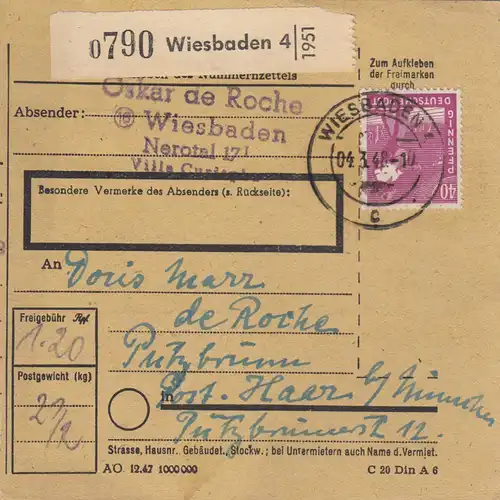 0790 Wiesbaden 4 1951
des Nummernzettels
Zum Aufkleben
der Freimarken
durch
Absender:
Oskar de Roche
(16) Wiesbaden
Nerotal 171
Villa
WIESBADEN
04.3.48.-10
c
DEUTSCHE POST
PFENNIG
40
Besondere Vermerke des Absenders (s. Rückseite):
An
Doris Marx
de Roche
Putzbrunn
in
Post. Haar b/ München
Putzbrunnerst 12.
Freigebühr Rpf.
1.20
Postgewicht (kg)
2 1/2
Strasse, Hausnr. Gebäudet., Stockw.; bei Untermietern auch Name d. Vermiet.
AO. 12.47 1000000
C 20 Din A 6